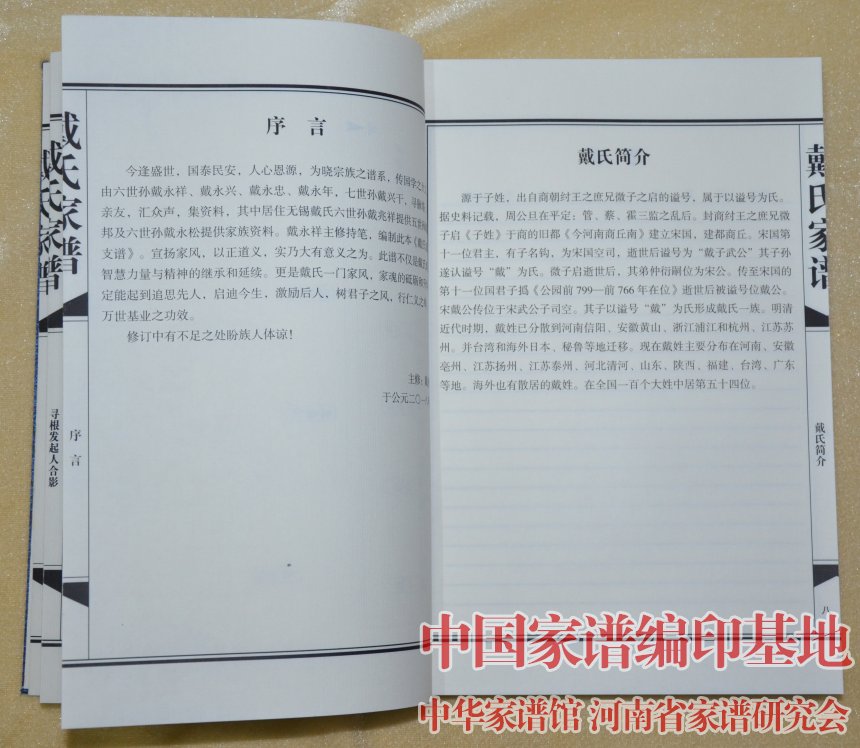 戴氏家谱
戴氏家谱
寻根发起人合影
序言
序言
今逢盛世，国泰民安，人心恩源，为晓宗族之谱系，传国学之
由六世孙戴永祥、戴永兴、戴永忠、戴永年，七世孙戴兴干，
亲友，汇众声，集资料，其中居住无锡戴氏六世孙戴兆祥提供五
邦及六世孙戴永松提供家族资料。戴永祥主修持笔，编制此本《戴
支谱》。宣扬家风，以正道义，实乃大有意义之为。此谱不仅是戴
智慧力量与精神的继承和延续。更是戴氏一门家风，家魂的砥砺和
定能起到追思先人，启迪今生，激励后人，树君子之风，行仁义之
万世基业之功效。
修订中有不足之处盼族人体谅！
主修：
于公元二〇一
戴氏简介
源于子姓，出自商朝纣王之庶兄微子之启的谥号，属于以谥号为氏。
据史料记载，周公旦在平定；管、蔡、霍三监之乱后。封商纣王之庶兄微
子启《子姓》于商的旧都《今河南商丘南》建立宋国，建都商丘。宋国第
十一位君主，有子名钩，为宋国空司，逝世后谥号为“戴子武公”其子孙
遂认谥号“戴”为氏。微子启逝世后，其弟仲衍嗣位为宋公。传至宋国的
第十一位国君子捣《公园前799—前766年在位》逝世后被谥号位戴公。
宋戴公传位于宋武公子司空。其子以谥号“戴”为氏形成戴氏一族。明清
近代时期，戴姓已分散到河南信阳、安徽黄山、浙江浦江和杭州、江苏苏
州。并台湾和海外日本、秘鲁等地迁移。现在戴姓主要分布在河南、安徽
亳州、江苏扬州、江苏泰州、河北清河、山东、陕西、福建、台湾、广东
等地。海外也有散居的戴姓。在全国一百个大姓中居第五十四位。
戴氏家谱
戴氏简介
八
中国家谱编印基地
中华家谱馆 河南省家谱研究会